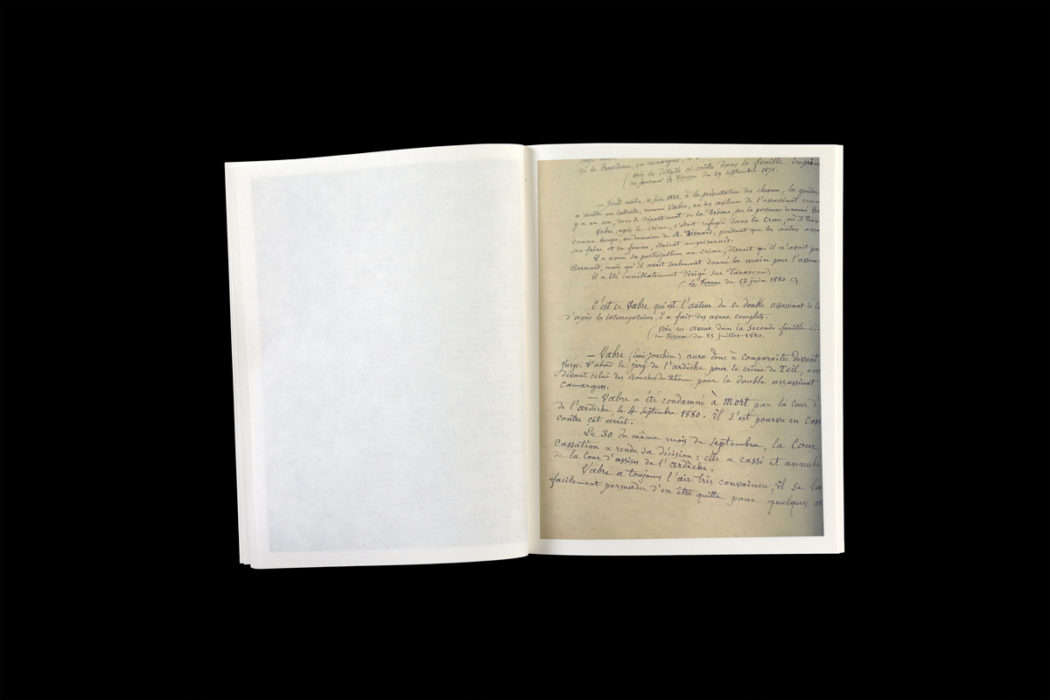 de la
(Voir les détails ci-contre dans la feuille imprim
du journal Le Forum du 29 septembre 187
— Jeudi matin, 10 juin 1880, à la présentation du cheval, la gendar
a arrêté un individu, nommé Vabre, un des auteurs de l'assassinat
y a un an, dans le département de la Drôme, sur la personne
Vabre après le crime, s'était réfugié dans la Crau, où il
comme berger, au domaine de M. Bernard, prétend que les autres assa
son frère et sa femme, étaient emprisonnés.
Il a avoué sa participation au crime, disant qu'il n'avait pas
Bernard, mais qu'il avait seulement donné la main pour l'assom
Il a été immédiatement dirigé sur Tarascon.
(Le Forum du 13 juin 1880.)
C'est ce Vabre qui est l'auteur de ce double assassinat de
d'après les interrogatoires, il a fait des aveux complets.
(Voir ces aveux dans la seconde feuille ci-
du Forum du 25 juillet 1880.
— Vabre (Louis Joachim) aura donc à comparaître devant
jurys. D'abord le jury de l'ardèche pour le crime du Teil, en
devant celui des Bouches-du-Rhône pour le double assassinat
Camargues.
— Vabre a été condamné à mort par la Cour d'
de l'ardèche, le 4 septembre 1880. Il s'est pourvu en Cass
contre cet arrêt.
Le 30 du même mois de septembre, la Cour
Cassation a rendu sa décision ; elle a cassé et annulé
de la Cour d'assises de l'ardèche.
Vabre a toujours l'air très convaincu, il se la
facilement persuader d'en être quitte pour quelques a